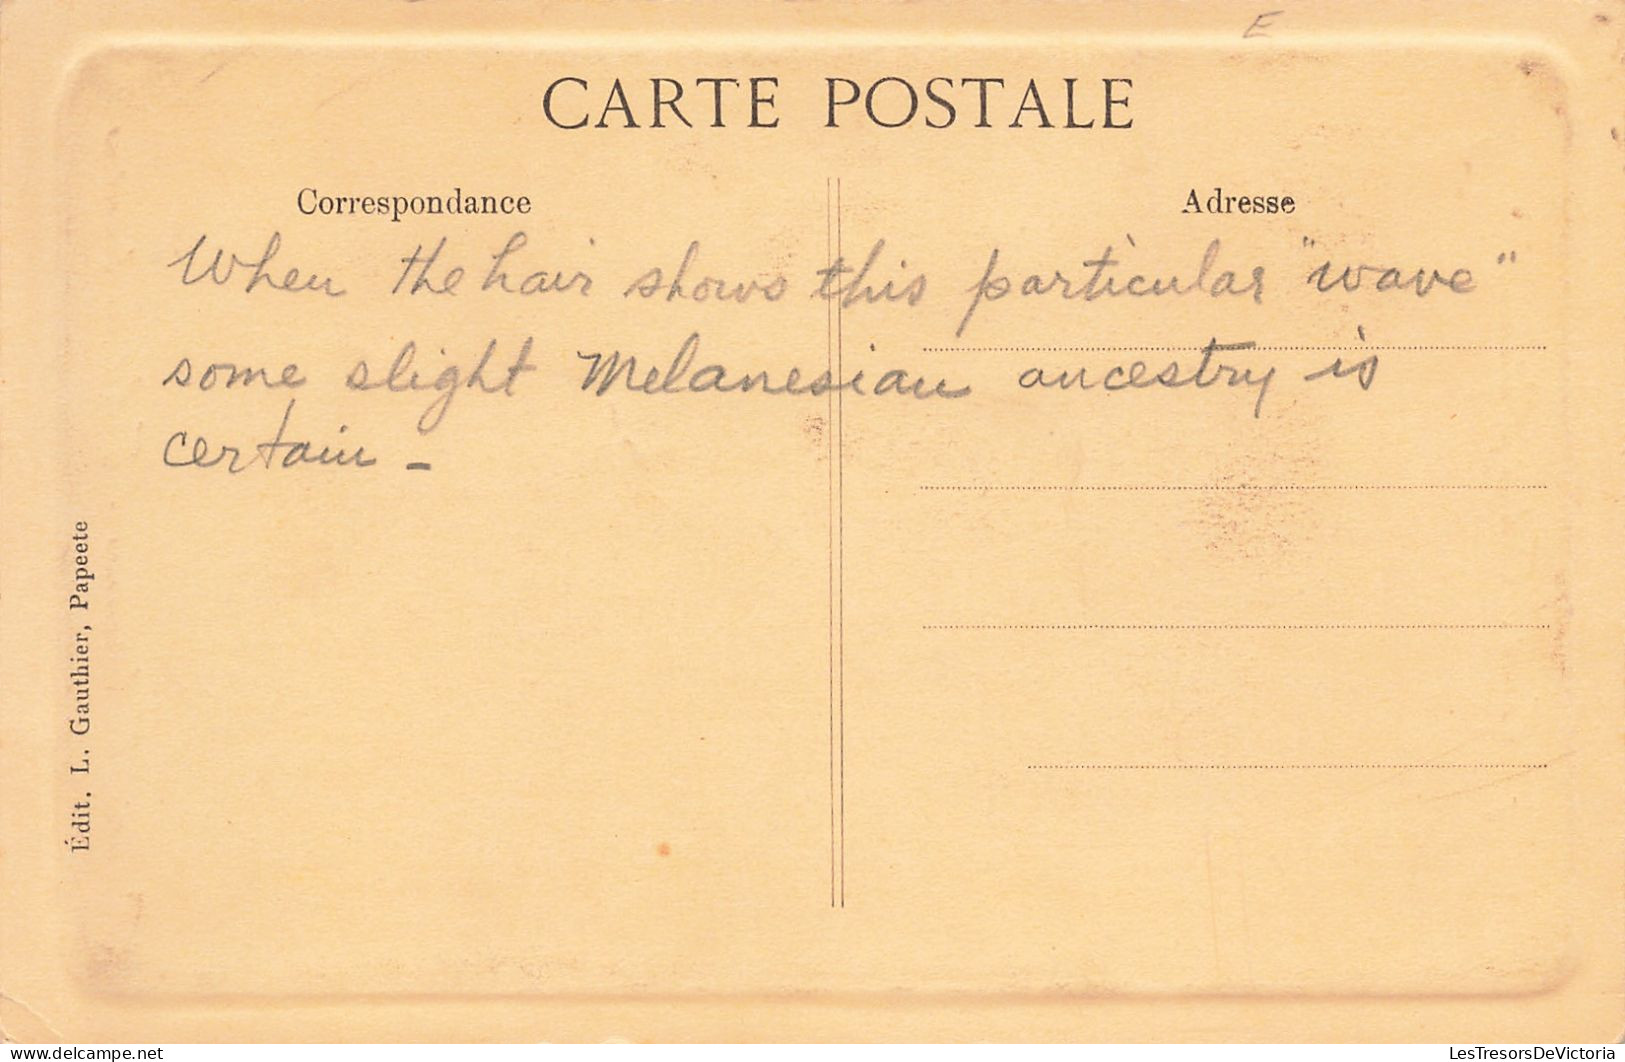 E
CARTE POSTALE
Correspondance
Adresse
When the hair shows this particular "wave"
some slight Melanesian ancestry is
certain -
Édit. L. Gauthier, Papeete
delcampe.net
LesTresorsDeVictoria